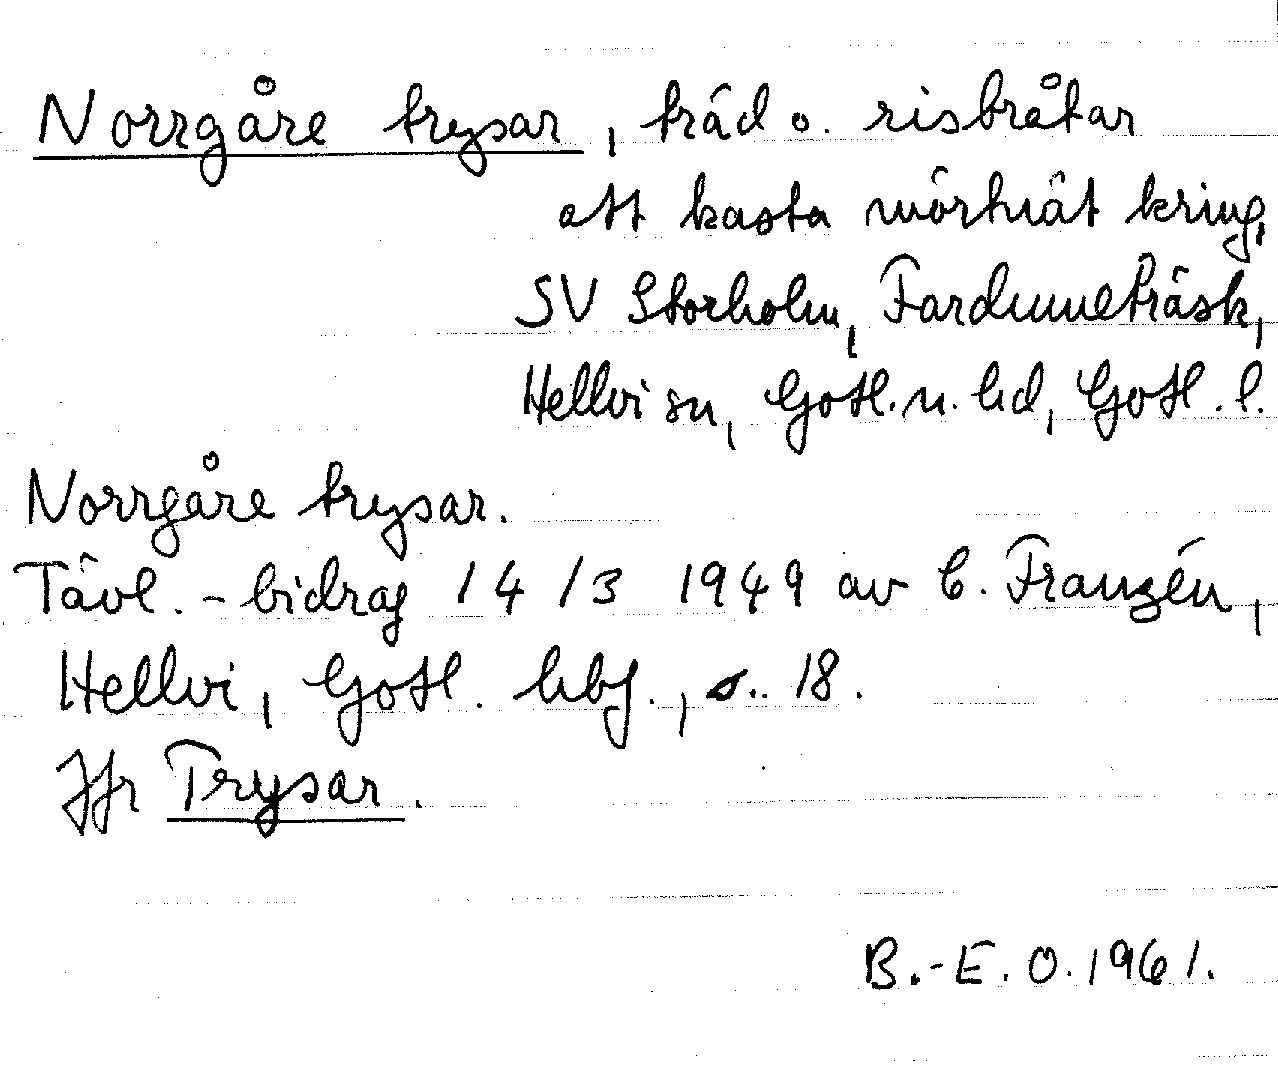 Norrgåre trysar, träd o. risbråtar
att kasta mörtnät kring,
SV Storholm, Fardumeträsk,
Hellvi sn, Gotl. n. hd, Gotl. l.
Norrgåre trysar.
Tävl.-bidrag 14/3 1949 av C. Franzén,
Hellvi, Gotl. hbf., s. 18.
Jfr Trysar.
B.-E. O. 1961.